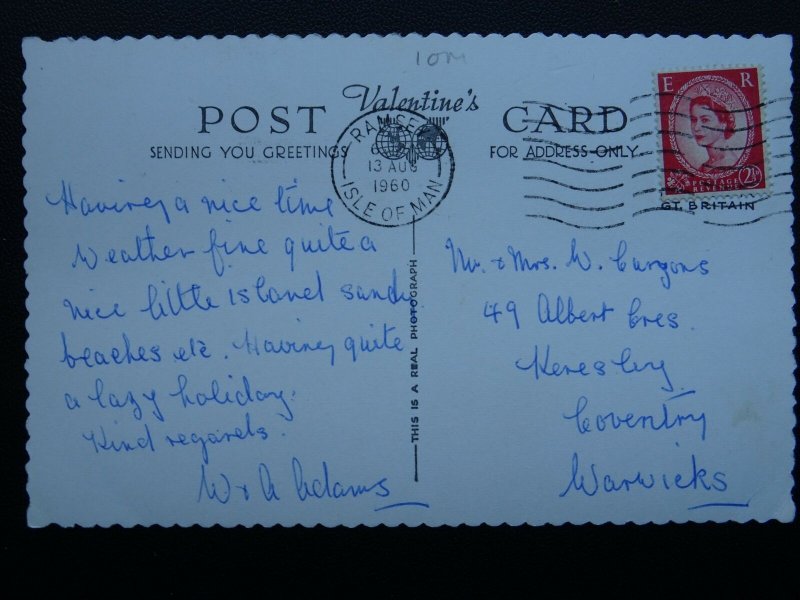 IOM
Valentine's
POST CARD
SENDING YOU GREETINGS FOR ADDRESS ONLY
RAMSEY
13 AUG
1960
ISLE OF MAN
E R
POSTAGE
REVENUE
2½D
GT. BRITAIN
Having a nice time
Weather fine quite a
nice little island sandy
beaches etc. Having quite
a lazy holiday.
Kind regards.
W & A Adams
THIS IS A REAL PHOTOGRAPH
Mr. & Mrs. W.
49 Albert Cres.
Keresley
Coventry
Warwicks